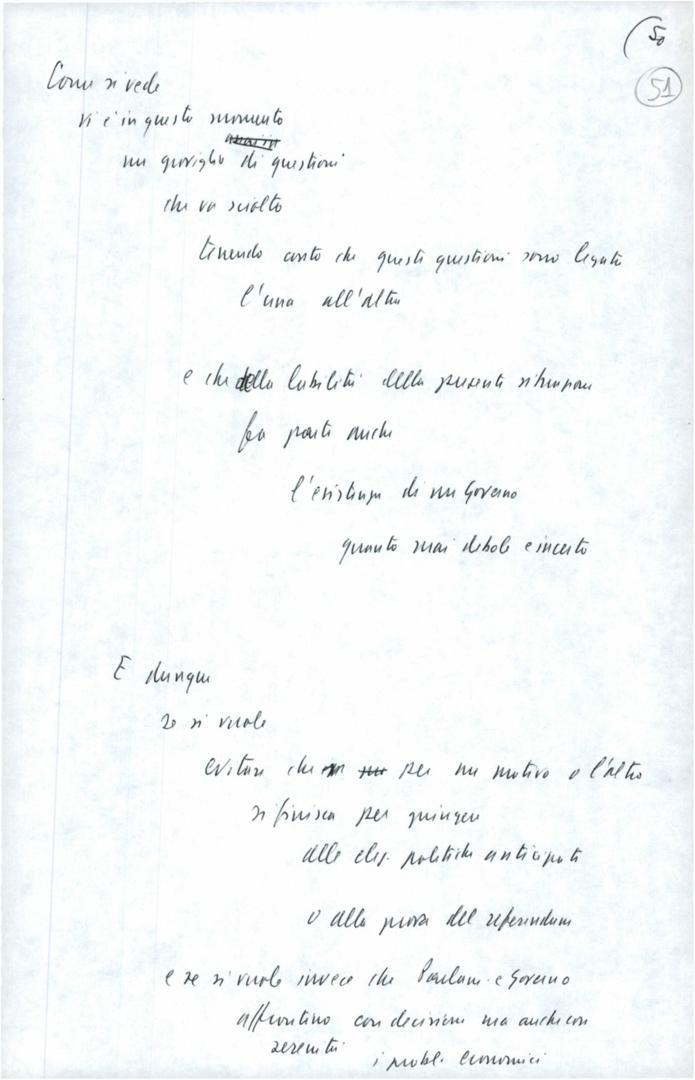 (50
51
Come si vede
vi è in questo momento
un groviglio di questioni
che va sciolto
tenendo conto che queste questioni sono legate
l'una all'altra
e che della labilità della presente situazione
fa parte anche
l'esistenza di un Governo
quanto mai debole e incerto
E dunque
se si vuole
evitare che per un motivo o l'altro
si finisca per giungere
alle elez. politiche anticipate
o alla prova del referendum
e se si vuole invece che Parlam. e Governo
affrontino con decisione ma anche con
serenità i probl. economici